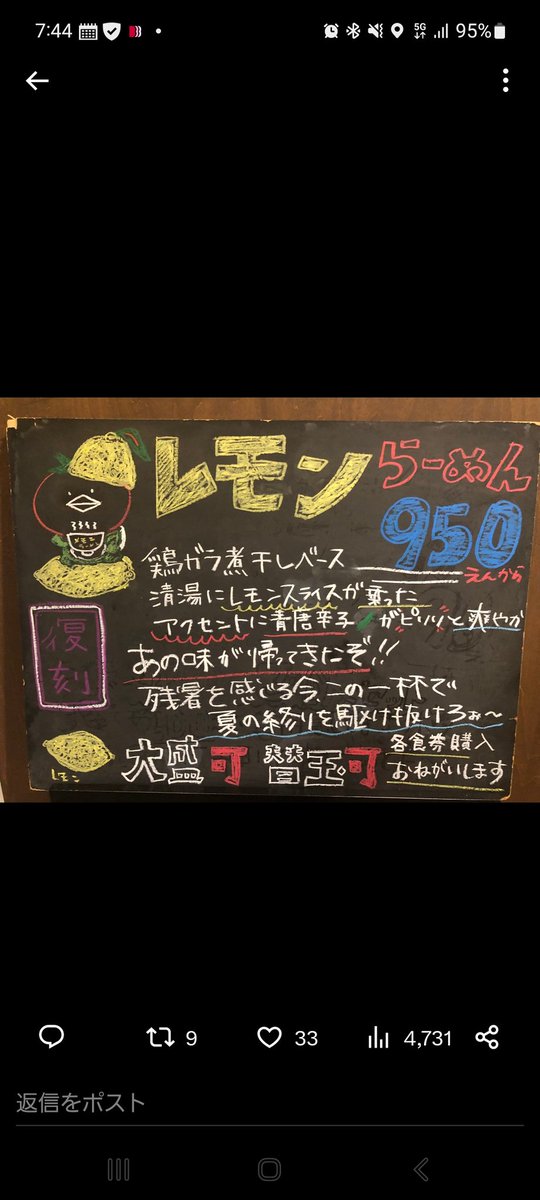 7:44
5G
95%
レモン
らーめん
950
えんから
鶏ガラ煮干しベース
清湯にレモンスライスが乗った
アクセントに青唐辛子がピリッと爽やか
復刻
あの味が帰ってきたぞ!!
残暑を感じる今、この一杯で
夏の終りを駆け抜けろぉ〜
レモン
大盛可 替玉可
各食券購入
おねがいします
9
33
4,731
返信をポスト